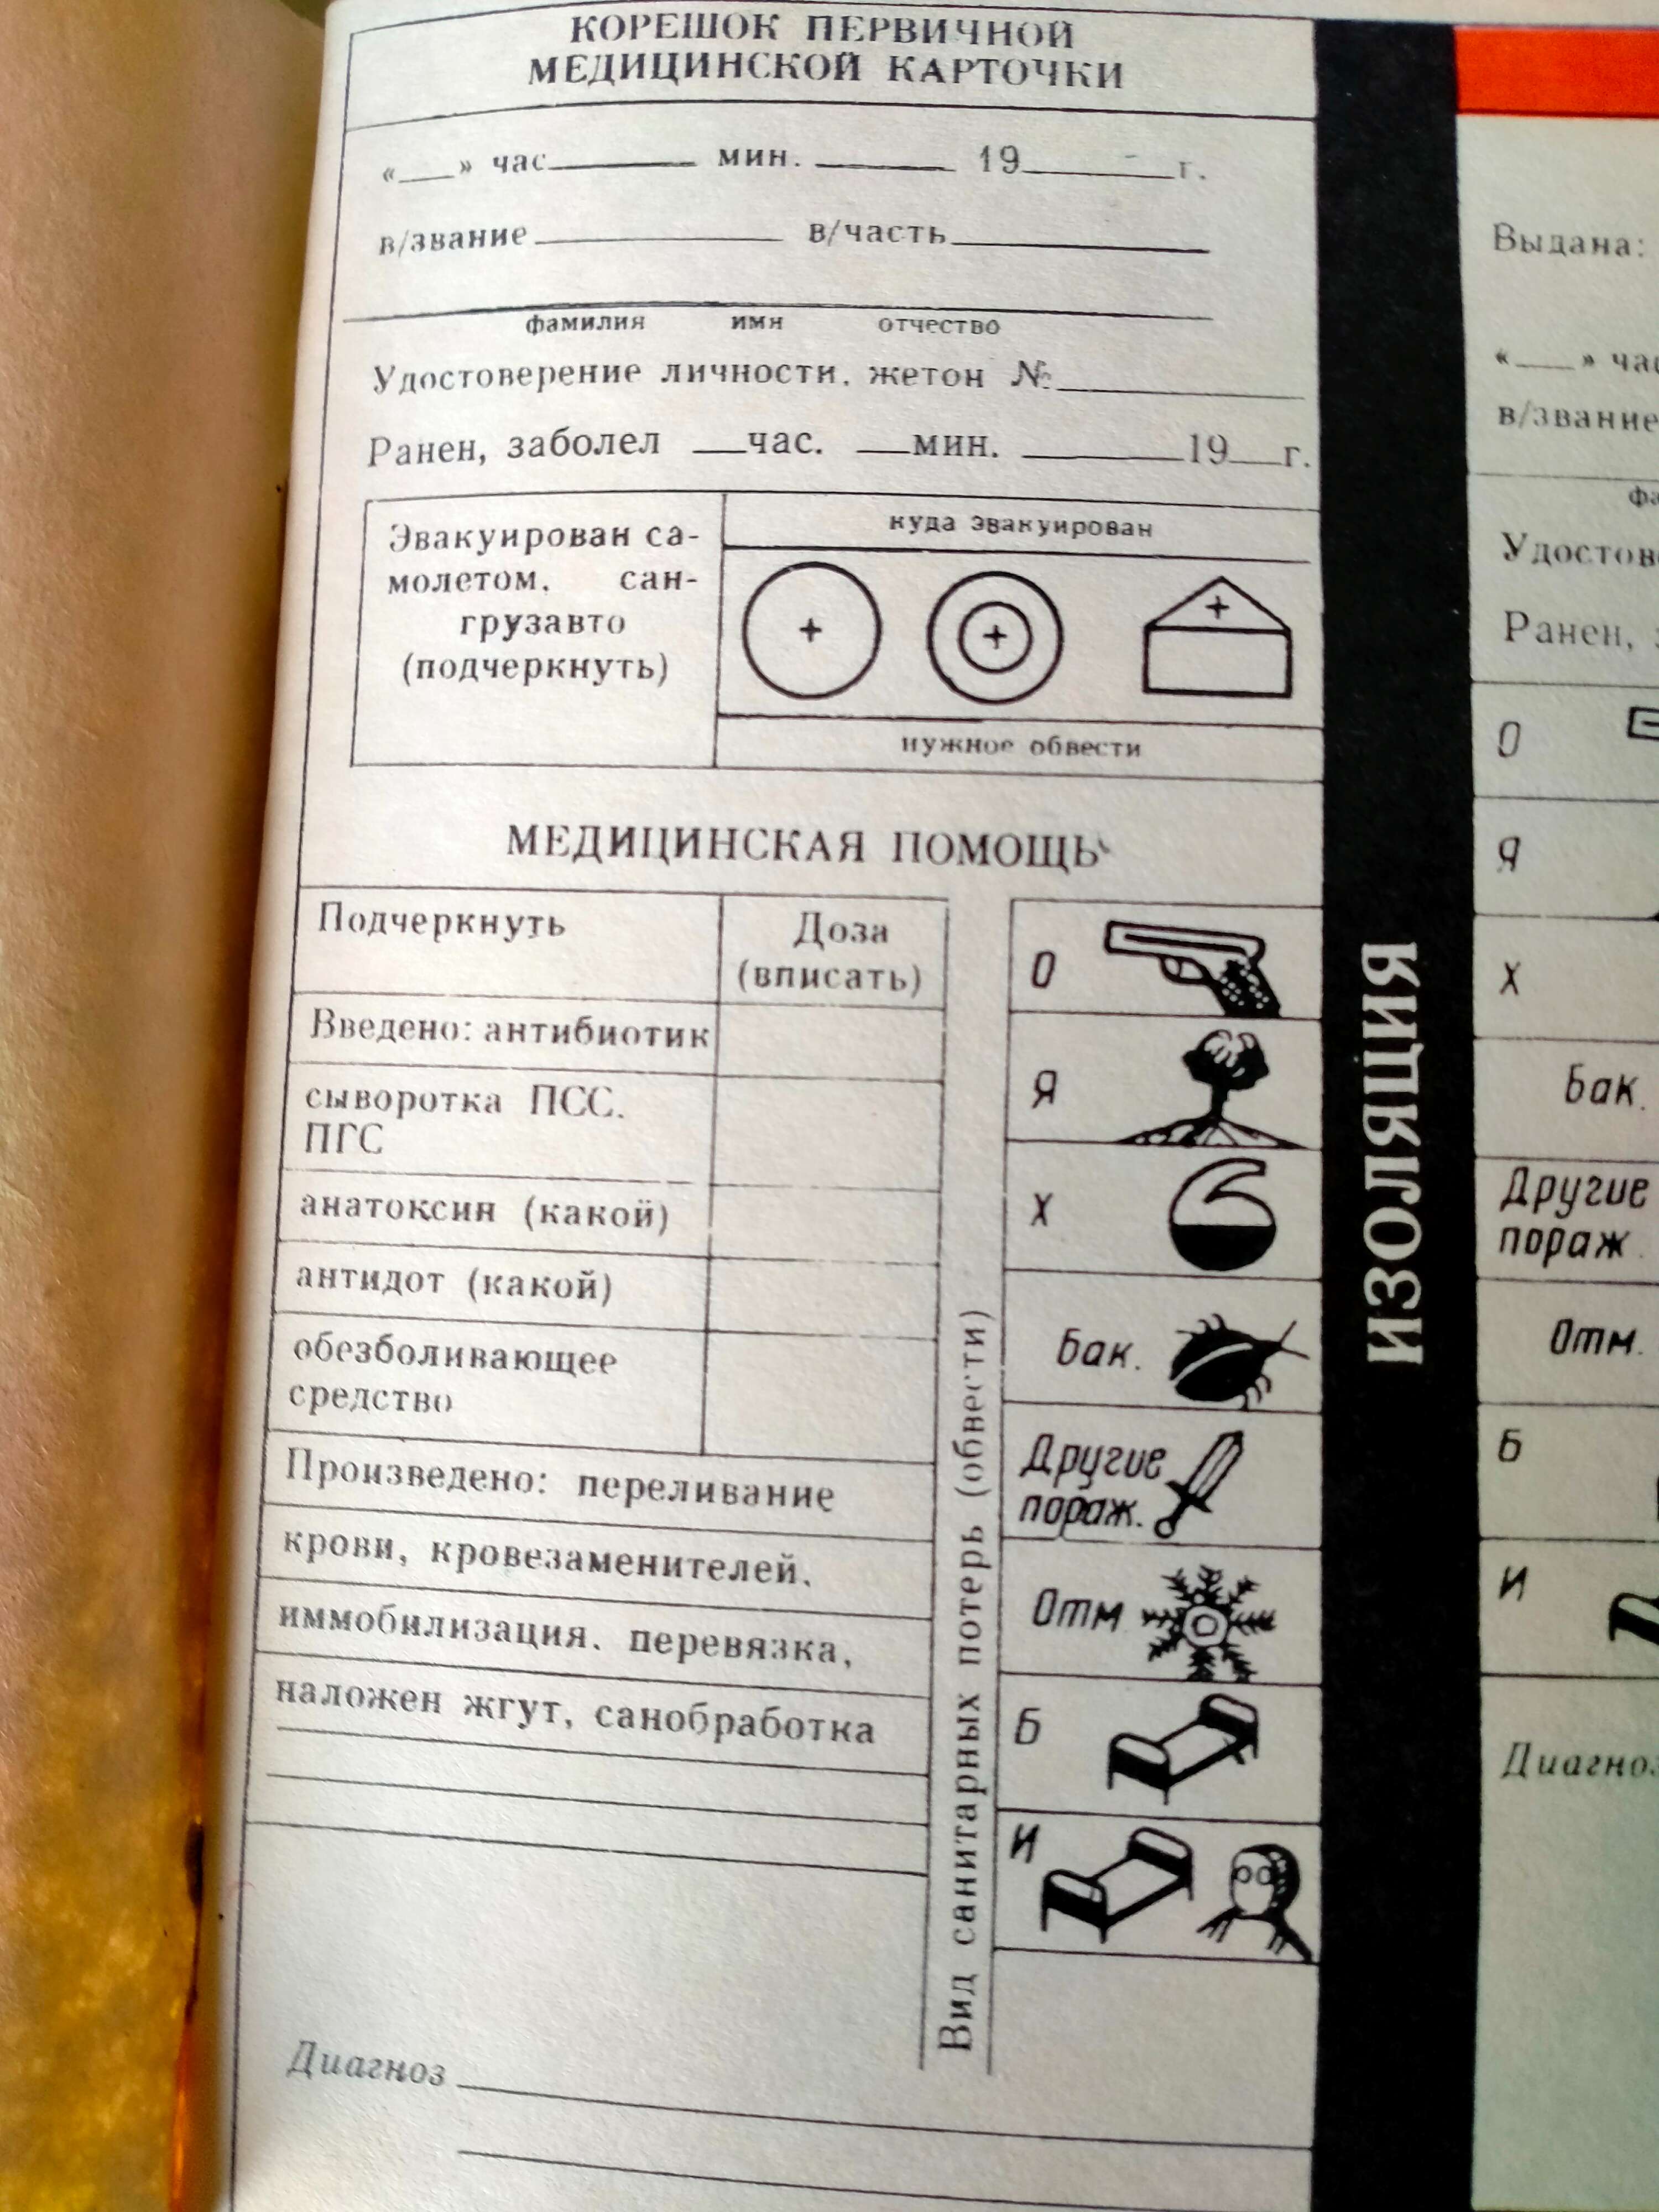 КОРЕШОК ПЕРВИЧНОЙ
МЕДИЦИНСКОЙ КАРТОЧКИ
«___» час________ мин. ________ 19________г.
в/звание______________ в/часть______________
фамилия имя отчество
Удостоверение личности, жетон №______________
Ранен, заболел ___час. ___мин. _________19___г.
Эвакуирован са-
молетом, сан-
грузавто
(подчеркнуть)
куда эвакуирован
нужное обвести
МЕДИЦИНСКАЯ ПОМОЩЬ
Подчеркнуть
Доза
(вписать)
Введено: антибиотик
сыворотка ПСС.
ПГС
анатоксин (какой)
антидот (какой)
обезболивающее
средство
Произведено: переливание
крови, кровезаменителей,
иммобилизация, перевязка,
наложен жгут, санобработка
Диагноз
Вид санитарных потерь (обвести)
О
Я
Х
Бак.
Другие
пораж.
Отм
Б
И
ИЗОЛЯЦИЯ
Выдана:
«___» час
в/звание
фа
Удостов
Ранен,
О
Я
Х
Бак.
Другие
пораж.
Отм.
Б
И
Диагноз